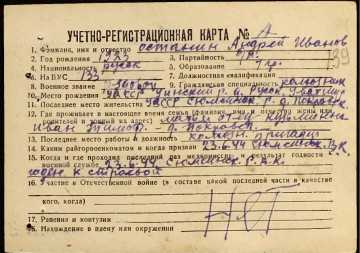 УЧЕТНО-РЕГИСТРАЦИОННАЯ КАРТА № А
1. Фамилия, имя и отчество Останин Андрей Иванов
2. Год рождения 1923 3. Партийность б/п
4. Национальность русск 5. Образование 7 кл.
6. № ВУС 133 7. Должностная квалификация
8. Военное звание рядовой 9. Гражданская специальность колхозник
10. Место рождения УАССР
11. Последнее место жительства УАССР Сюмсинск. р. д.
12. Где проживает в настоящее время семья (фамилия, имя и отчество жены или родителей и домашний их адрес)
Иван д.
13. Последнее место работы и должность колхоз
14. Каким райгорвоенкоматом и когда призван 23.6.44 Сюмсинск. РВК
15. Когда и где проходил последний раз медкомиссию и результат годности
военной службе 23.6.44 Сюмсинск. Р.В.К.
годен к строевой
16. Участие в Отечественной войне (в составе какой последней части в качестве
кого, когда) Нет
17. Ранения и контузии
18. Нахождение в плену или окружении